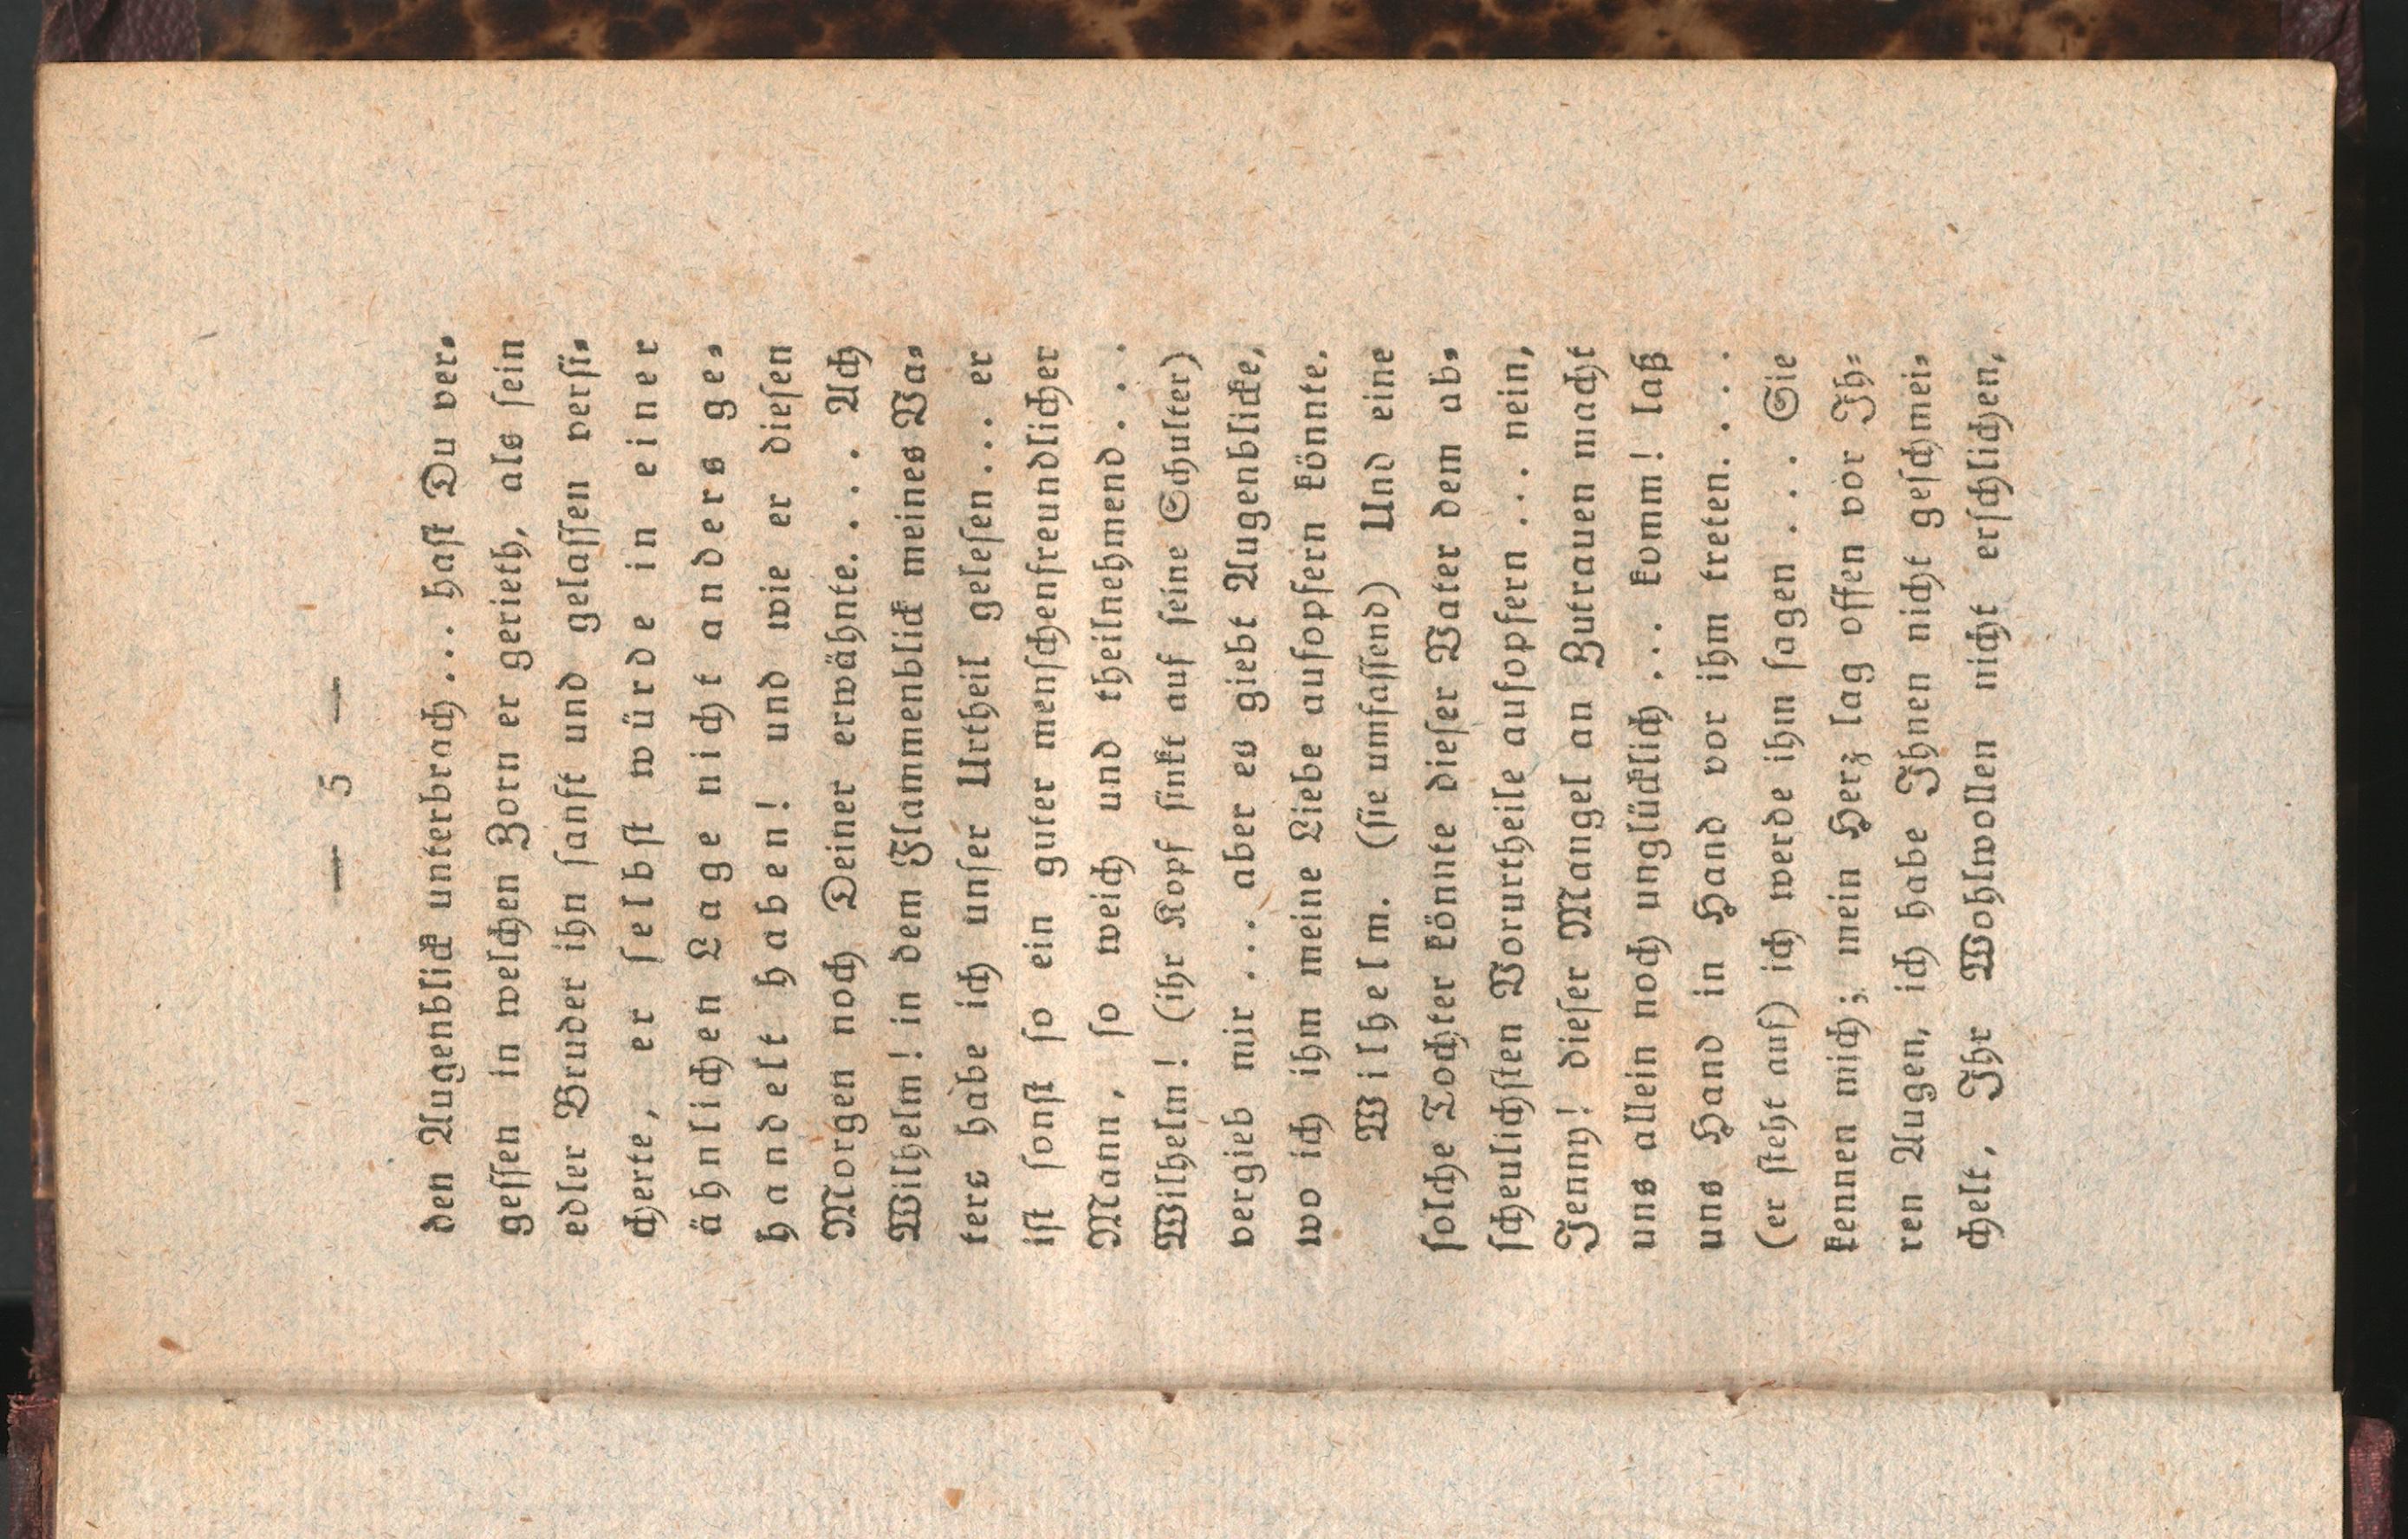 — 5 —
den Augenblick unterbrach... hast Du ver-
gessen in welchen Zorn er gerieth, als sein
edler Bruder ihn sanft und gelassen versi-
cherte, er selbst würde in einer
ähnlichen Lage nicht anders ge-
handelt haben! und wie er diesen
Morgen noch Deiner erwähnte.... Ach
Wilhelm! in dem Flammenblick meines Va-
ters habe ich unser Urtheil gelesen... er
ist sonst so ein guter menschenfreundlicher
Mann, so weich und theilnehmend...
Wilhelm! (ihr Kopf sinkt auf seine Schulter)
vergieb mir ... aber es giebt Augenblicke,
wo ich ihm meine Liebe aufopfern könnte.
Wilhelm. (sie umfassend) Und eine
solche Tochter könnte dieser Vater dem ab-
scheulichsten Vorurtheile aufopfern ... nein,
Jenny! dieser Mangel an Zutrauen macht
uns allein noch unglücklich ... komm! laß
uns Hand in Hand vor ihm treten....
(er steht auf) ich werde ihm sagen ... Sie
kennen mich; mein Herz lag offen vor Ih-
ren Augen, ich habe Ihnen nicht geschmei-
chelt, Ihr Wohlwollen nicht erschlichen,